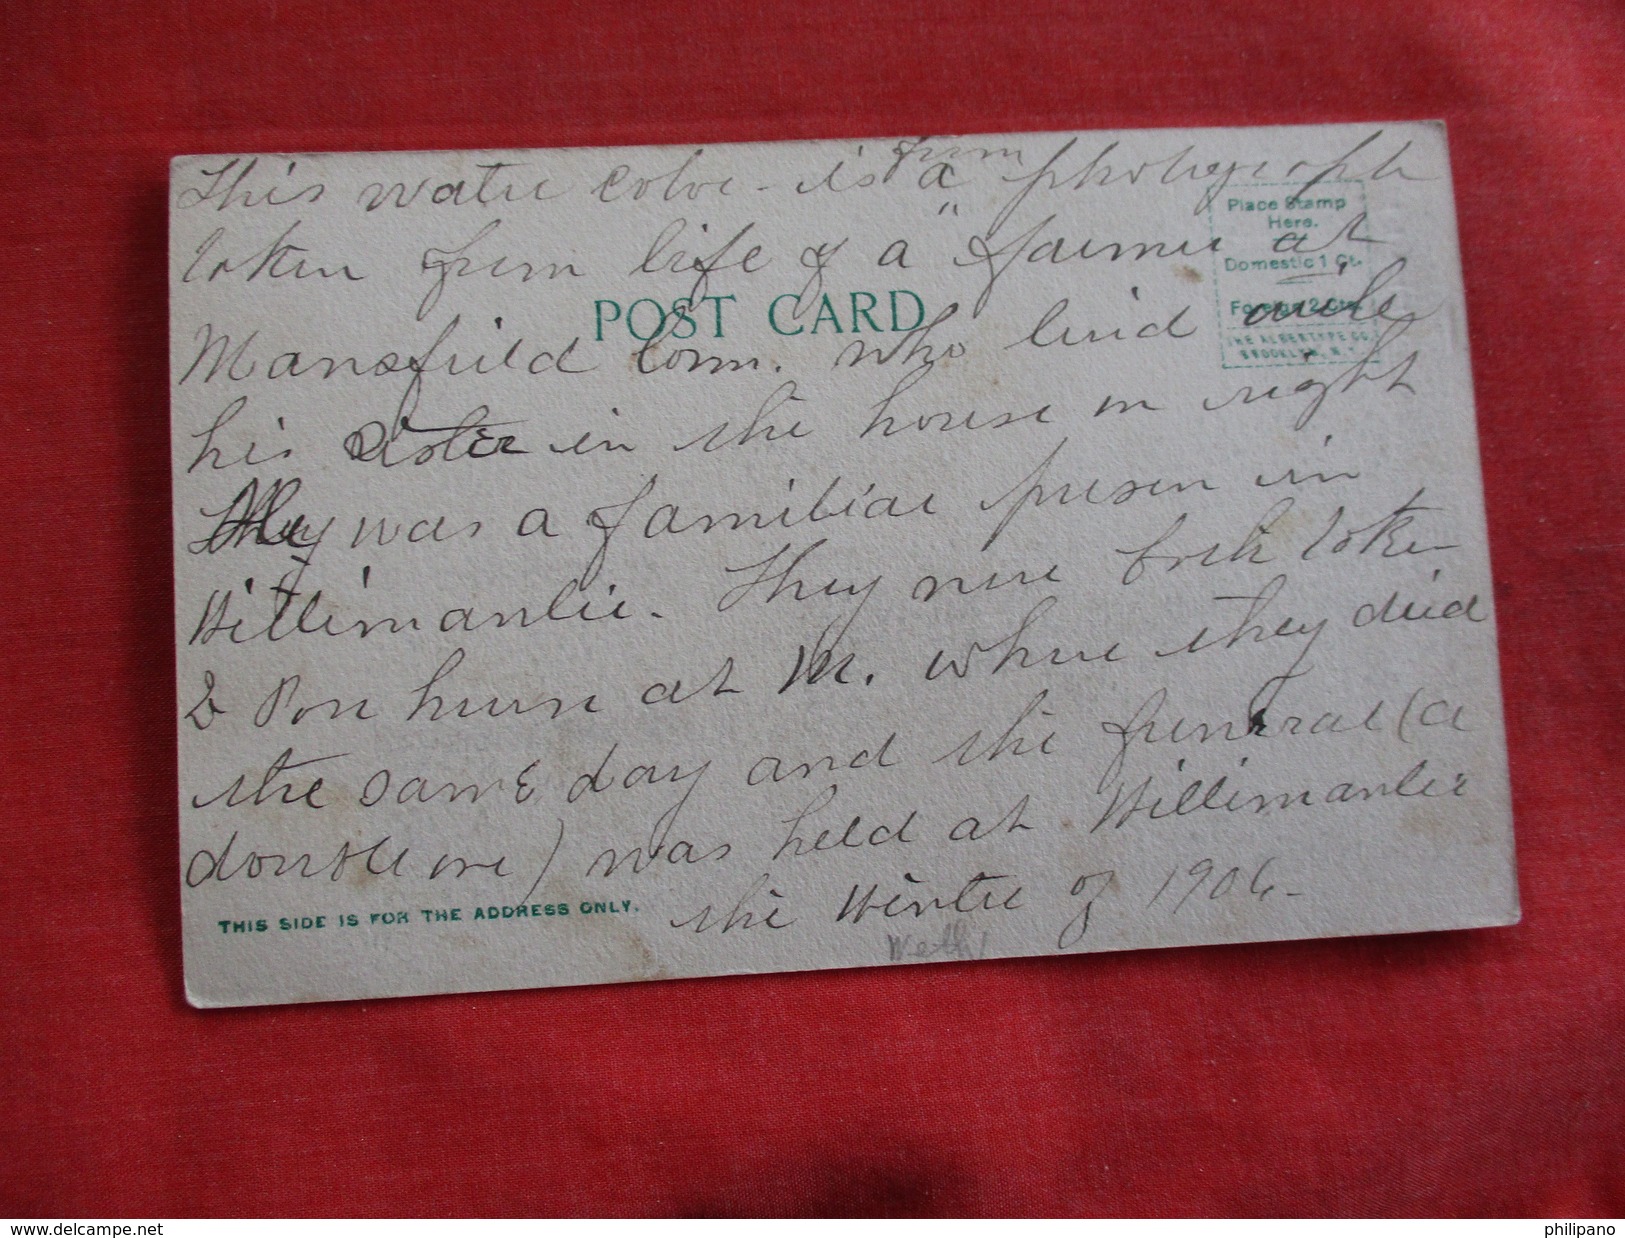 This water color - is from a photograph
taken from life of a farmer at
Mansfield Conn. who lived with
his sister in the house on right
They was a familiar person in
Willimantic. They were both taken
& Poor house at M. where they died
the same day and the funeral (a
double one) was held at Willimantic
the Winter of 1906-
POST CARD
Place Stamp
Here.
Domestic 1 Ct.
Foreign 2 Cts.
THE ALBERTYPE CO.
BROOKLYN, N.Y.
THIS SIDE IS FOR THE ADDRESS ONLY.
http://www.delcampe.net
philipano